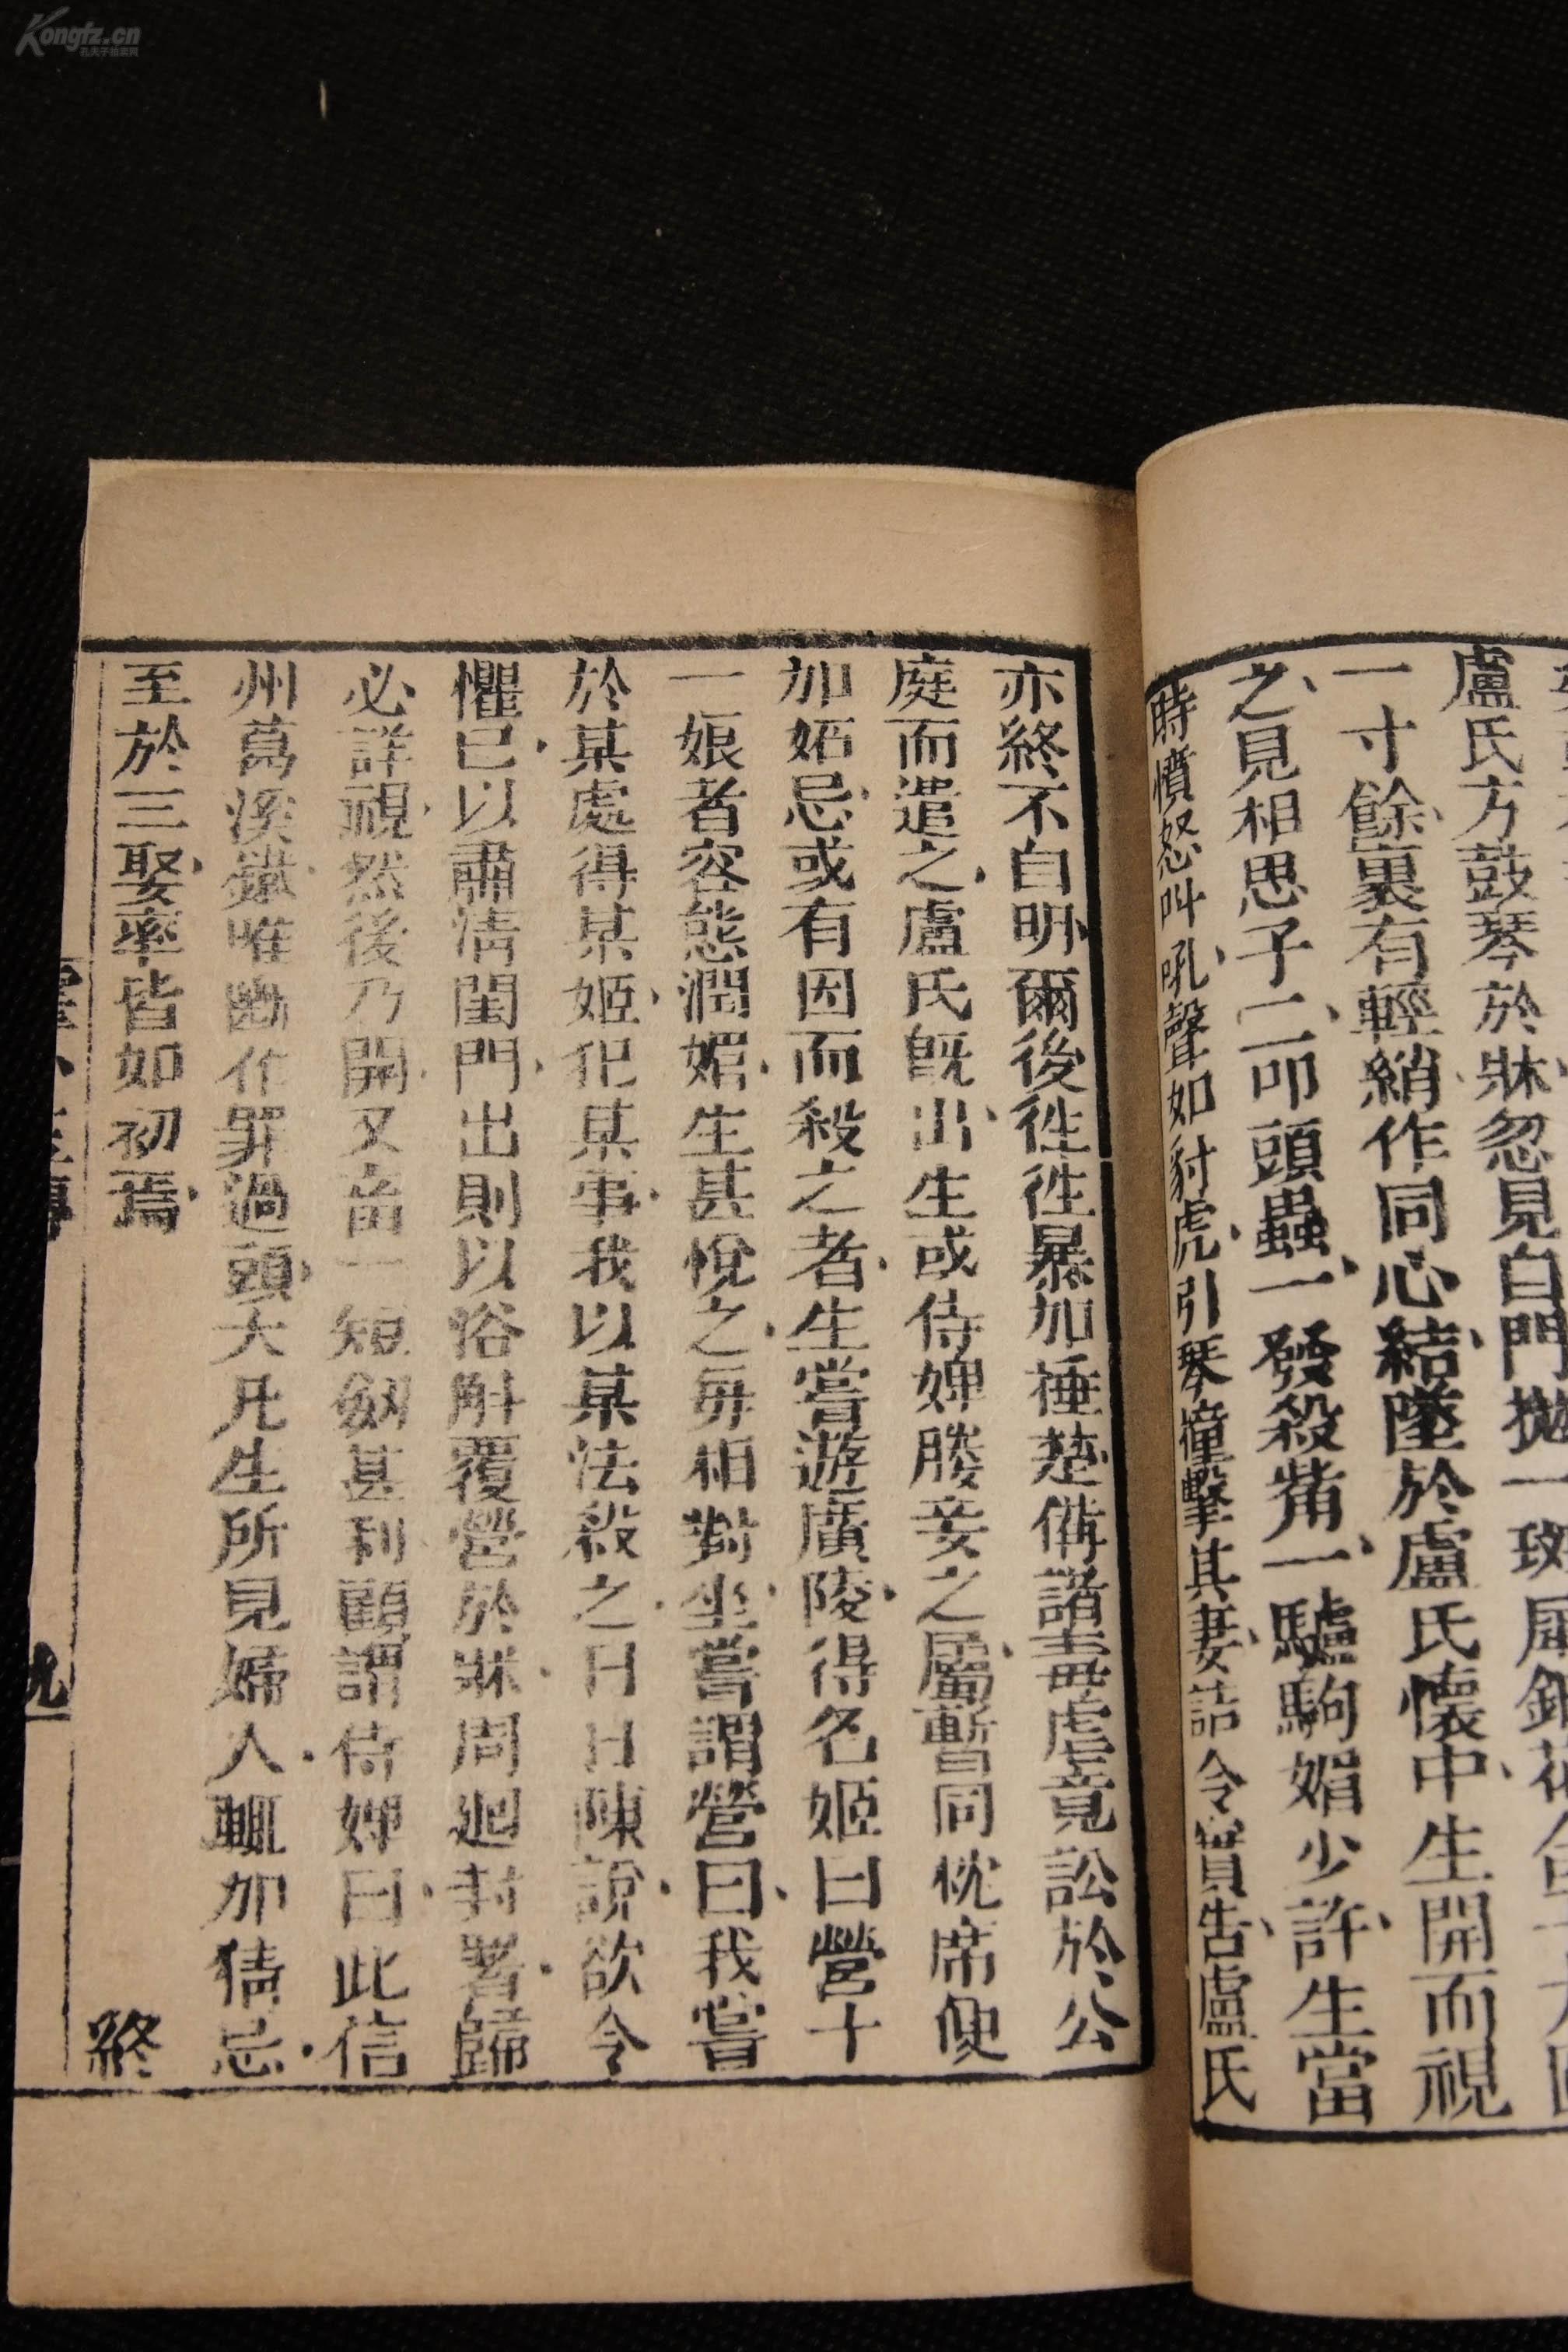 盧氏方鼓琴於牀忽見自門抛一斑犀鈿花合
一寸餘裏有輕綃作同心結墜於盧氏懷中生開而視
之見相思子二叩頭蟲一發殺觜一驢駒媚少許生當
時憤怒叫吼聲如豺虎引琴撞擊其妻詰令實告盧氏
亦終不自明爾後徃徃暴加捶楚備諸毒虐竟訟於公
庭而遣之盧氏旣出生或侍婢媵妾之屬暫同枕席便
加妬忌或有因而殺之者生嘗遊廣陵得名姬曰營十
一娘者容態潤媚生甚悅之每相對坐嘗謂營曰我嘗
於某處得某姬犯某事我以某法殺之日日陳說欲令
懼已以肅清閨門出則以浴斛覆營於牀周廻封署歸
必詳視然後乃開又畜一短劒甚利顧謂侍婢曰此信
州葛溪鐵唯斷作罪過頭大凡生所見婦人輒加猜忌
至於三娶率皆如初焉
終
九
Kongfz.cn
孔夫子拍卖网